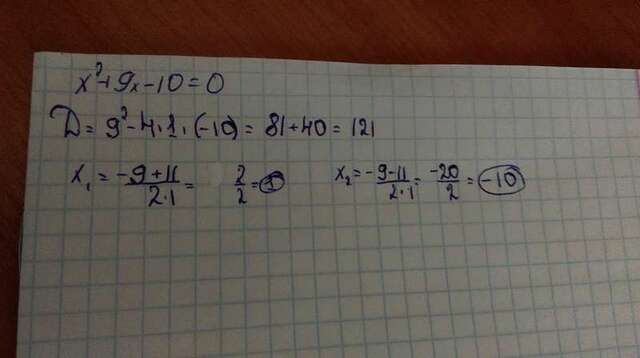 x²+9x-10=0
D=9²-4·1·(-10)=81+40=121
x₁=-9+11/2·1= 2/2=1 x₂=-9-11/2·1=-20/2=-10